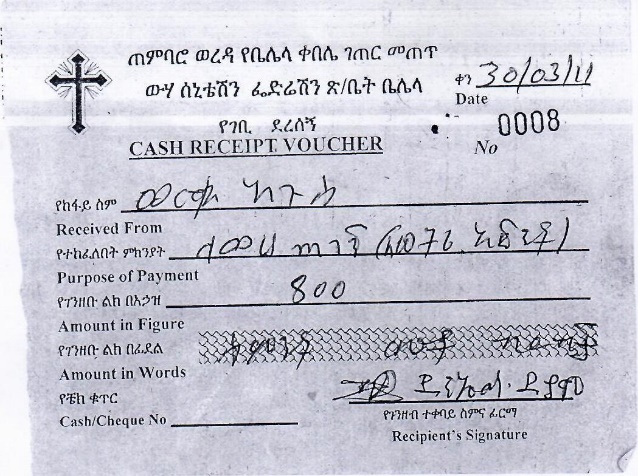 ጠምባሮ ወረዳ የቤሌላ ቀበሌ ገጠር መጠጥ
ውሃ ሰኒቴሽን ፌድሬሽን ጽ/ቤት ቤሌላ
ቀን 30/03/11
Date
የገቢ ደረሰኝ
0008
CASH RECEIPT VOUCHER
No
የከፋይ ስም
Received From
የተከፈለበት ምክንያት
Purpose of Payment
የገንዘቡ ልክ በአኃዝ 800
Amount in Figure
የገንዘቡ ልክ በፊደል
Amount in Words
የቼክ ቁጥር
Cash/Cheque No
የገንዘብ ተቀባይ ስምና ፊርማ
Recipient's Signature